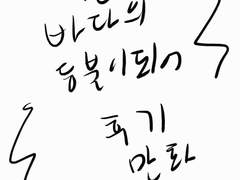 바다의
등불이되어
특기
만화